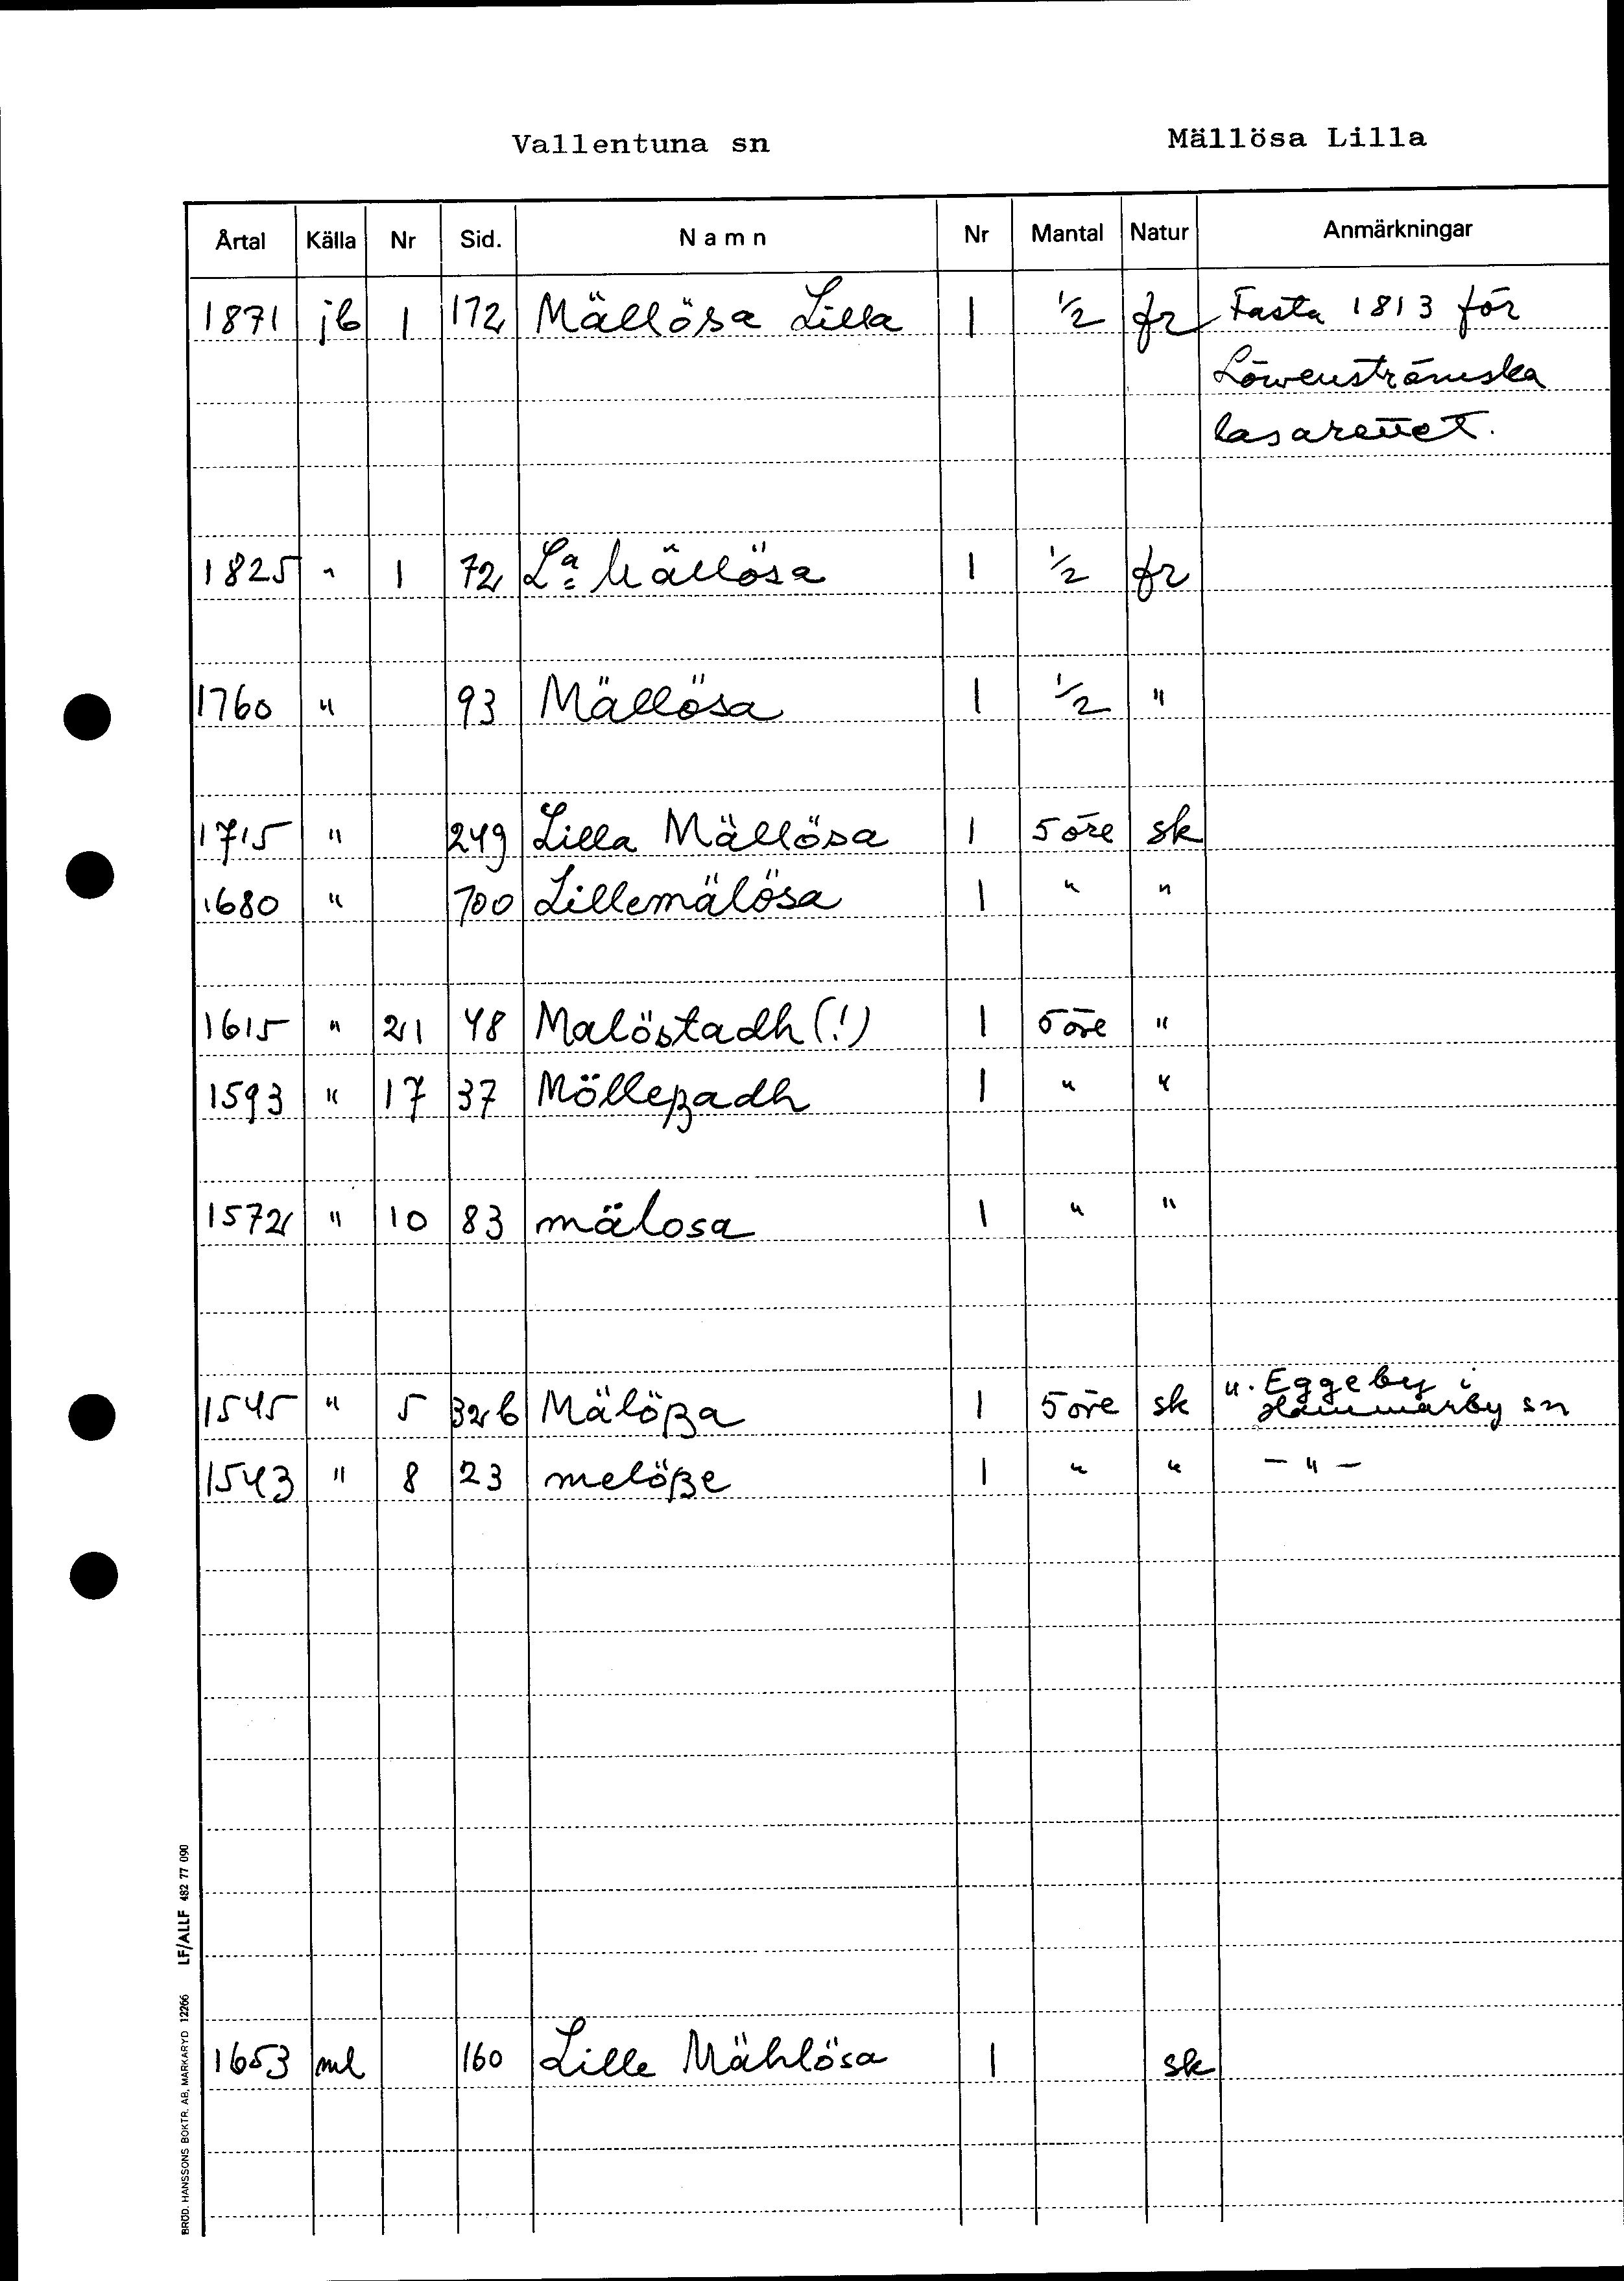 Vallentuna sn Mällösa Lilla
Årtal Källa Nr Sid. Namn Nr Mantal Natur Anmärkningar
1871 jb 1 172 Mällösa Lilla 1 1/2 fr Fasta 1813 för
Löwenströmska
lasarettet.
1825 " 1 72 La Mällösa 1 1/2 fr
1760 " 93 Mällösa 1 1/2 "
1715 " 249 Lilla Mällösa 1 5 öre sk
1680 " 700 Lillemälösa 1 " "
1615 " 21 48 Malöstadh (!) 1 5 öre "
1593 " 17 37 Mölleßadh 1 " "
1572 " 10 83 mälosa 1 " "
1545 " 5 32b Mälößa 1 5 öre sk u. Eggeby i
Hammarby sn
1543 " 8 23 melöße 1 " " - " -
1653 ml 160 Lille Mählösa 1 sk
BRÖD. HANSSONS BOKTR. AB, MARKARYD 12266 LF/ALLF 482 77 090